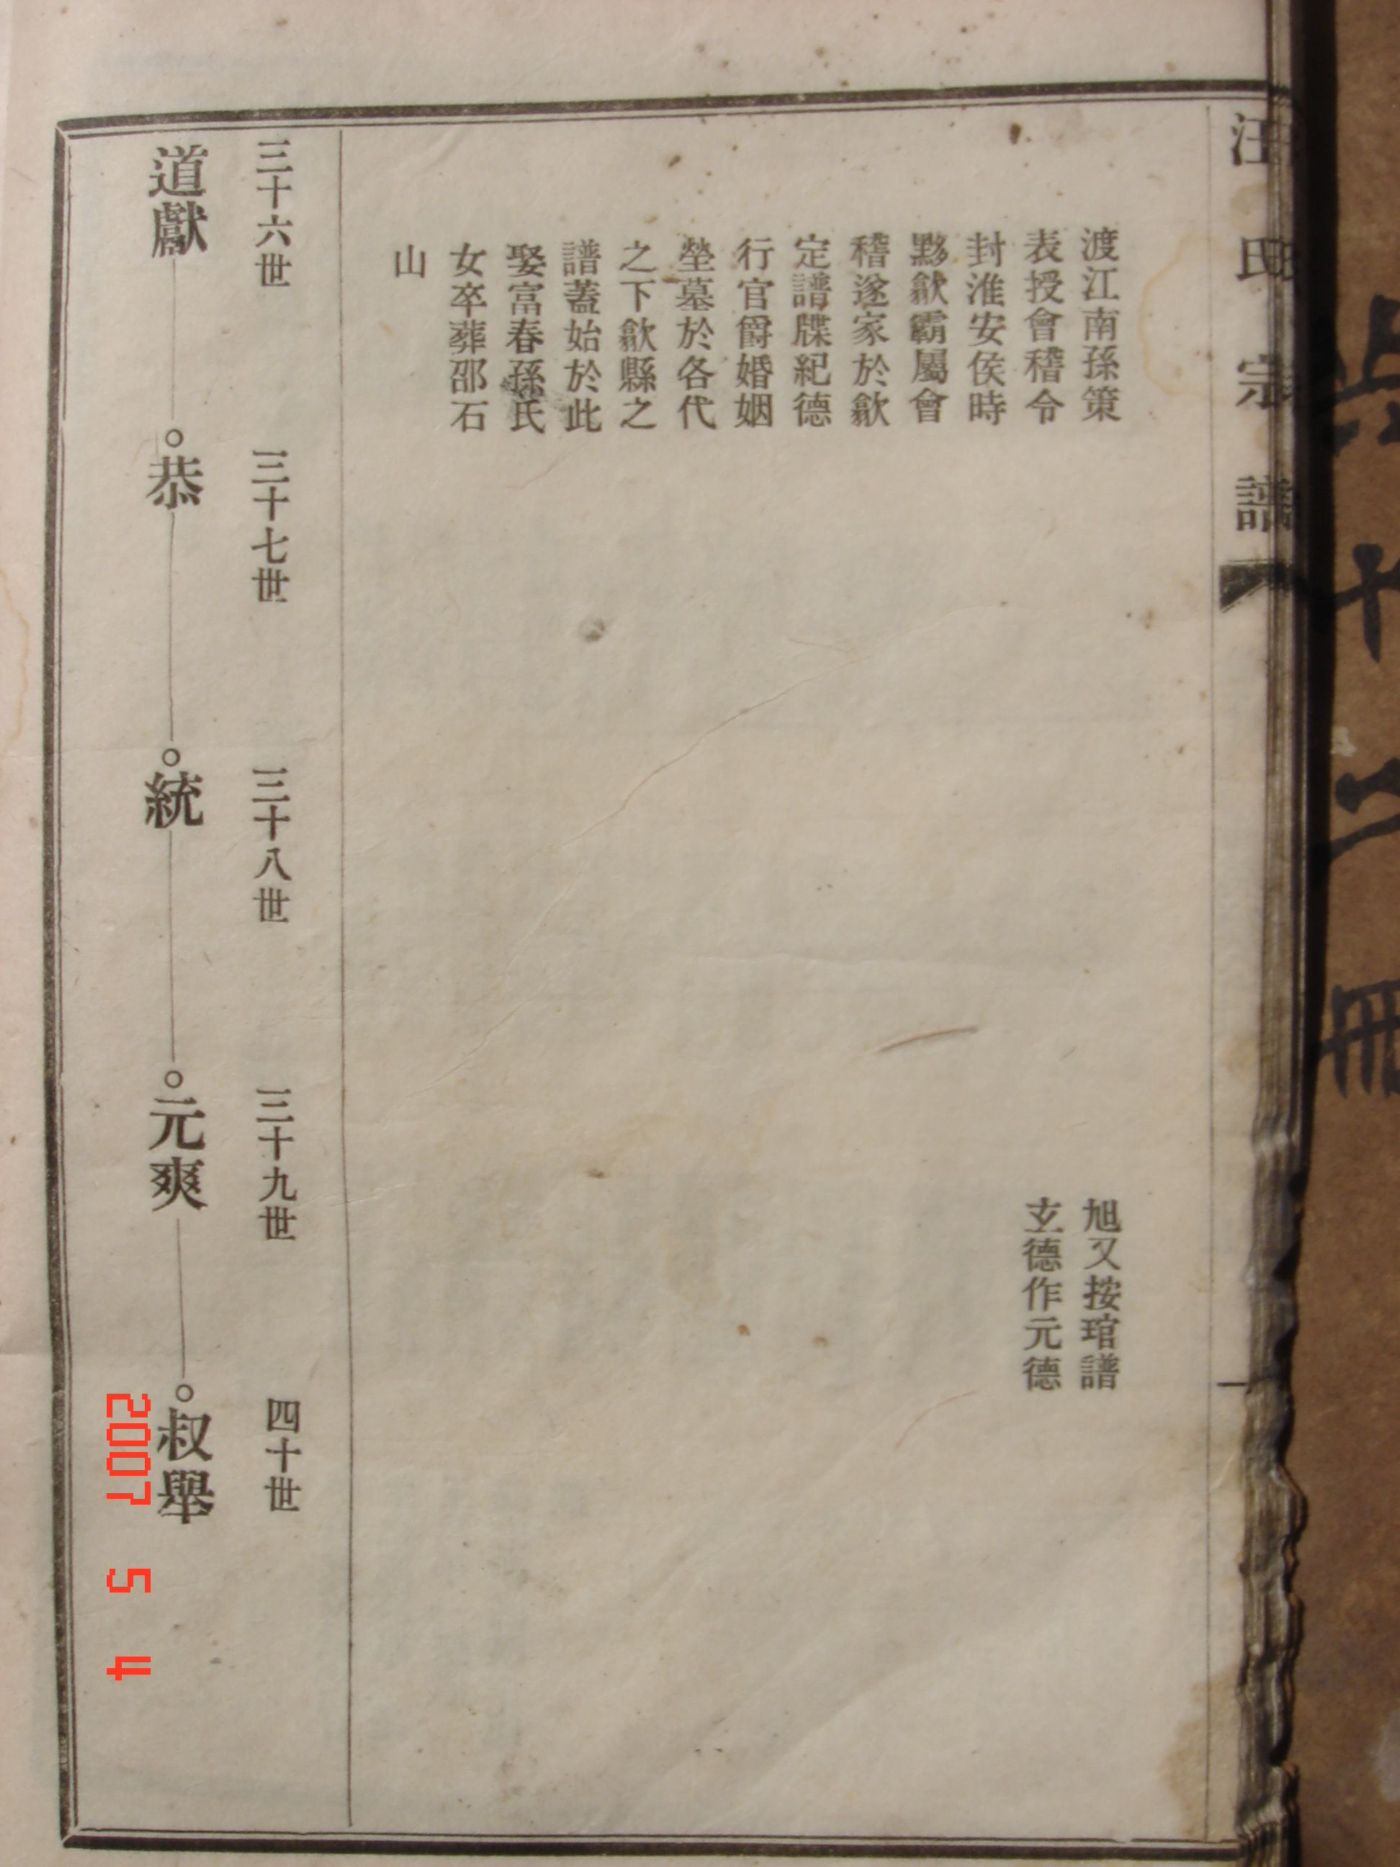 汪氏宗譜
一
渡江南孫策
表授會稽令
封淮安侯時
黟歙霸屬會
稽遂家於歙
定譜牒紀德
行官爵婚姻
塋墓於各代
之下歙縣之
譜蓋始於此
娶富春孫氏
女卒葬邵石
山
旭又按琯譜
玄德作元德
三十六世
三十七世
三十八世
三十九世
四十世
道獻
恭
統
元爽
叔舉
十二冊
2007 5 4